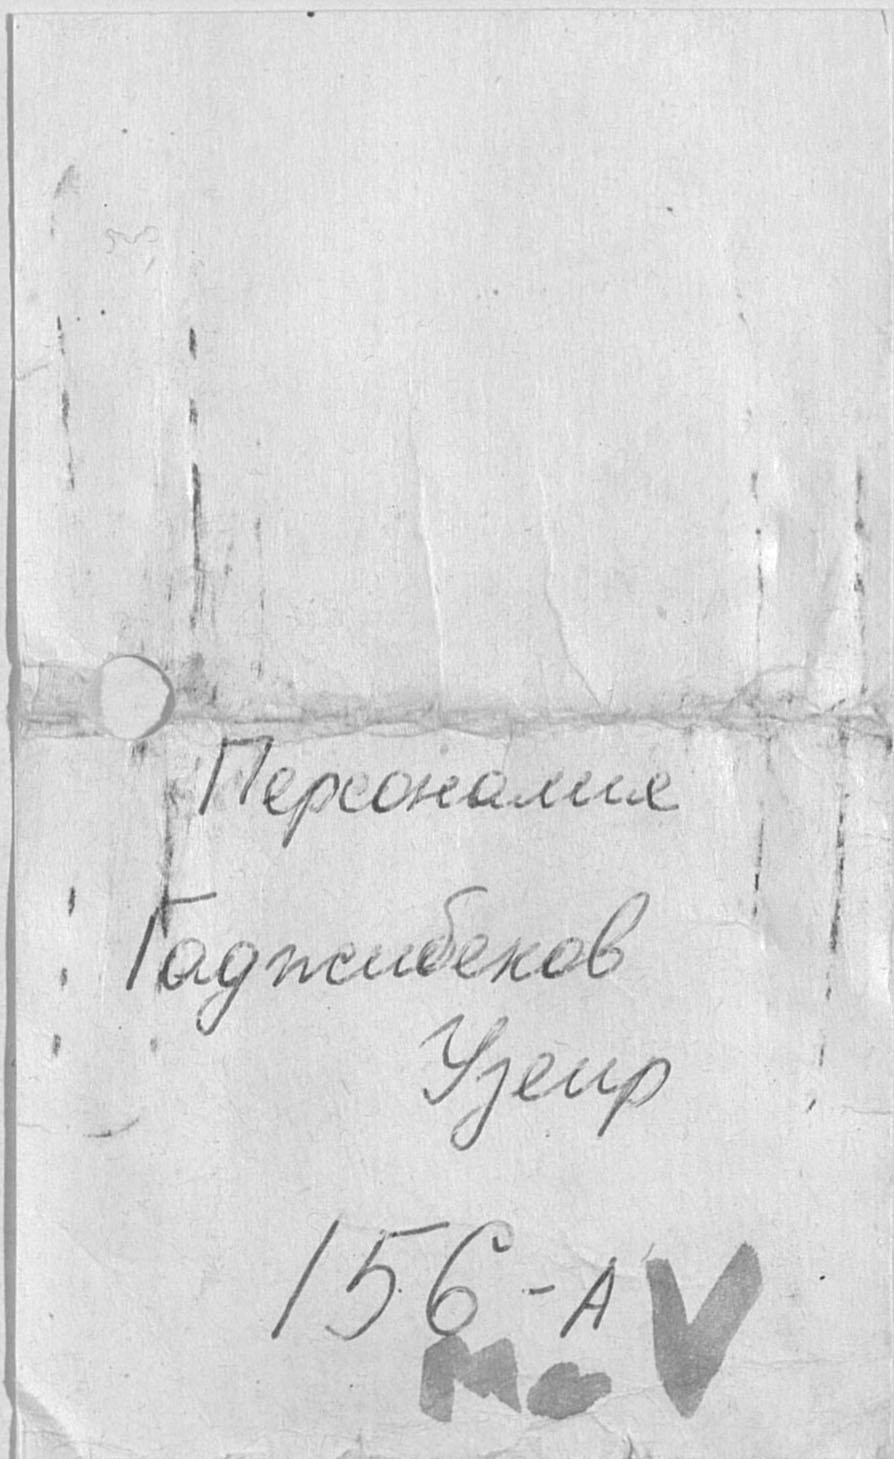 Персоналие
Гаджибеков
Узеир
156-А